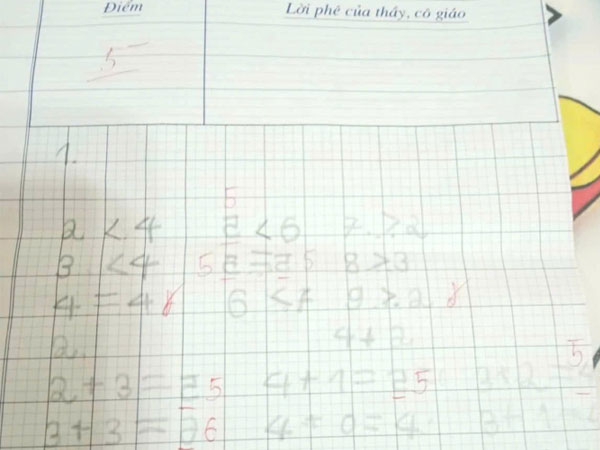 Điểm Lời phê của thầy, cô giáo
5
1.
5
2 < 4 < 6 7 > 2
3 < 4 5 = 5 8 > 3
4 = 4 6 < 7 9 > 2
2. 4 + 2
2 + 3 = 5 4 + 1 = 5 3 + 2 = 5
3 + 3 = 6 4 + 0 = 4 3 + 1 =